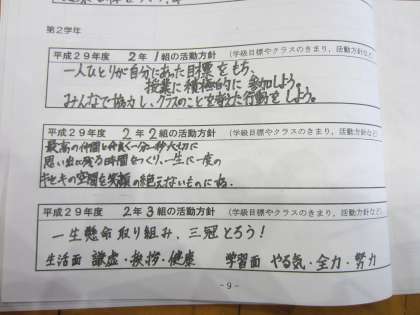 第2学年
平成29年度　2年 1組の活動方針　(学級目標やクラスのきまり, 活動方針など)
一人ひとりが自分にあった目標をもち、
授業に積極的に参加しよう。
みんなで協力し、クラスのことを考えた行動をしよう。
平成29年度　2年 2組の活動方針　(学級目標やクラスのきまり, 活動方針など)
最高の仲間と仲良く一分一秒大切に
思い出に残る時間をつくり、一生に一度の
キセキの空間を笑顔の絶えないものに
平成29年度　2年 3組の活動方針　(学級目標やクラスのきまり, 活動方針など)
一生懸命取り組み、三冠とろう!
生活面　謙虚・挨拶・健康　　学習面　やる気・全力・努力
- 9 -